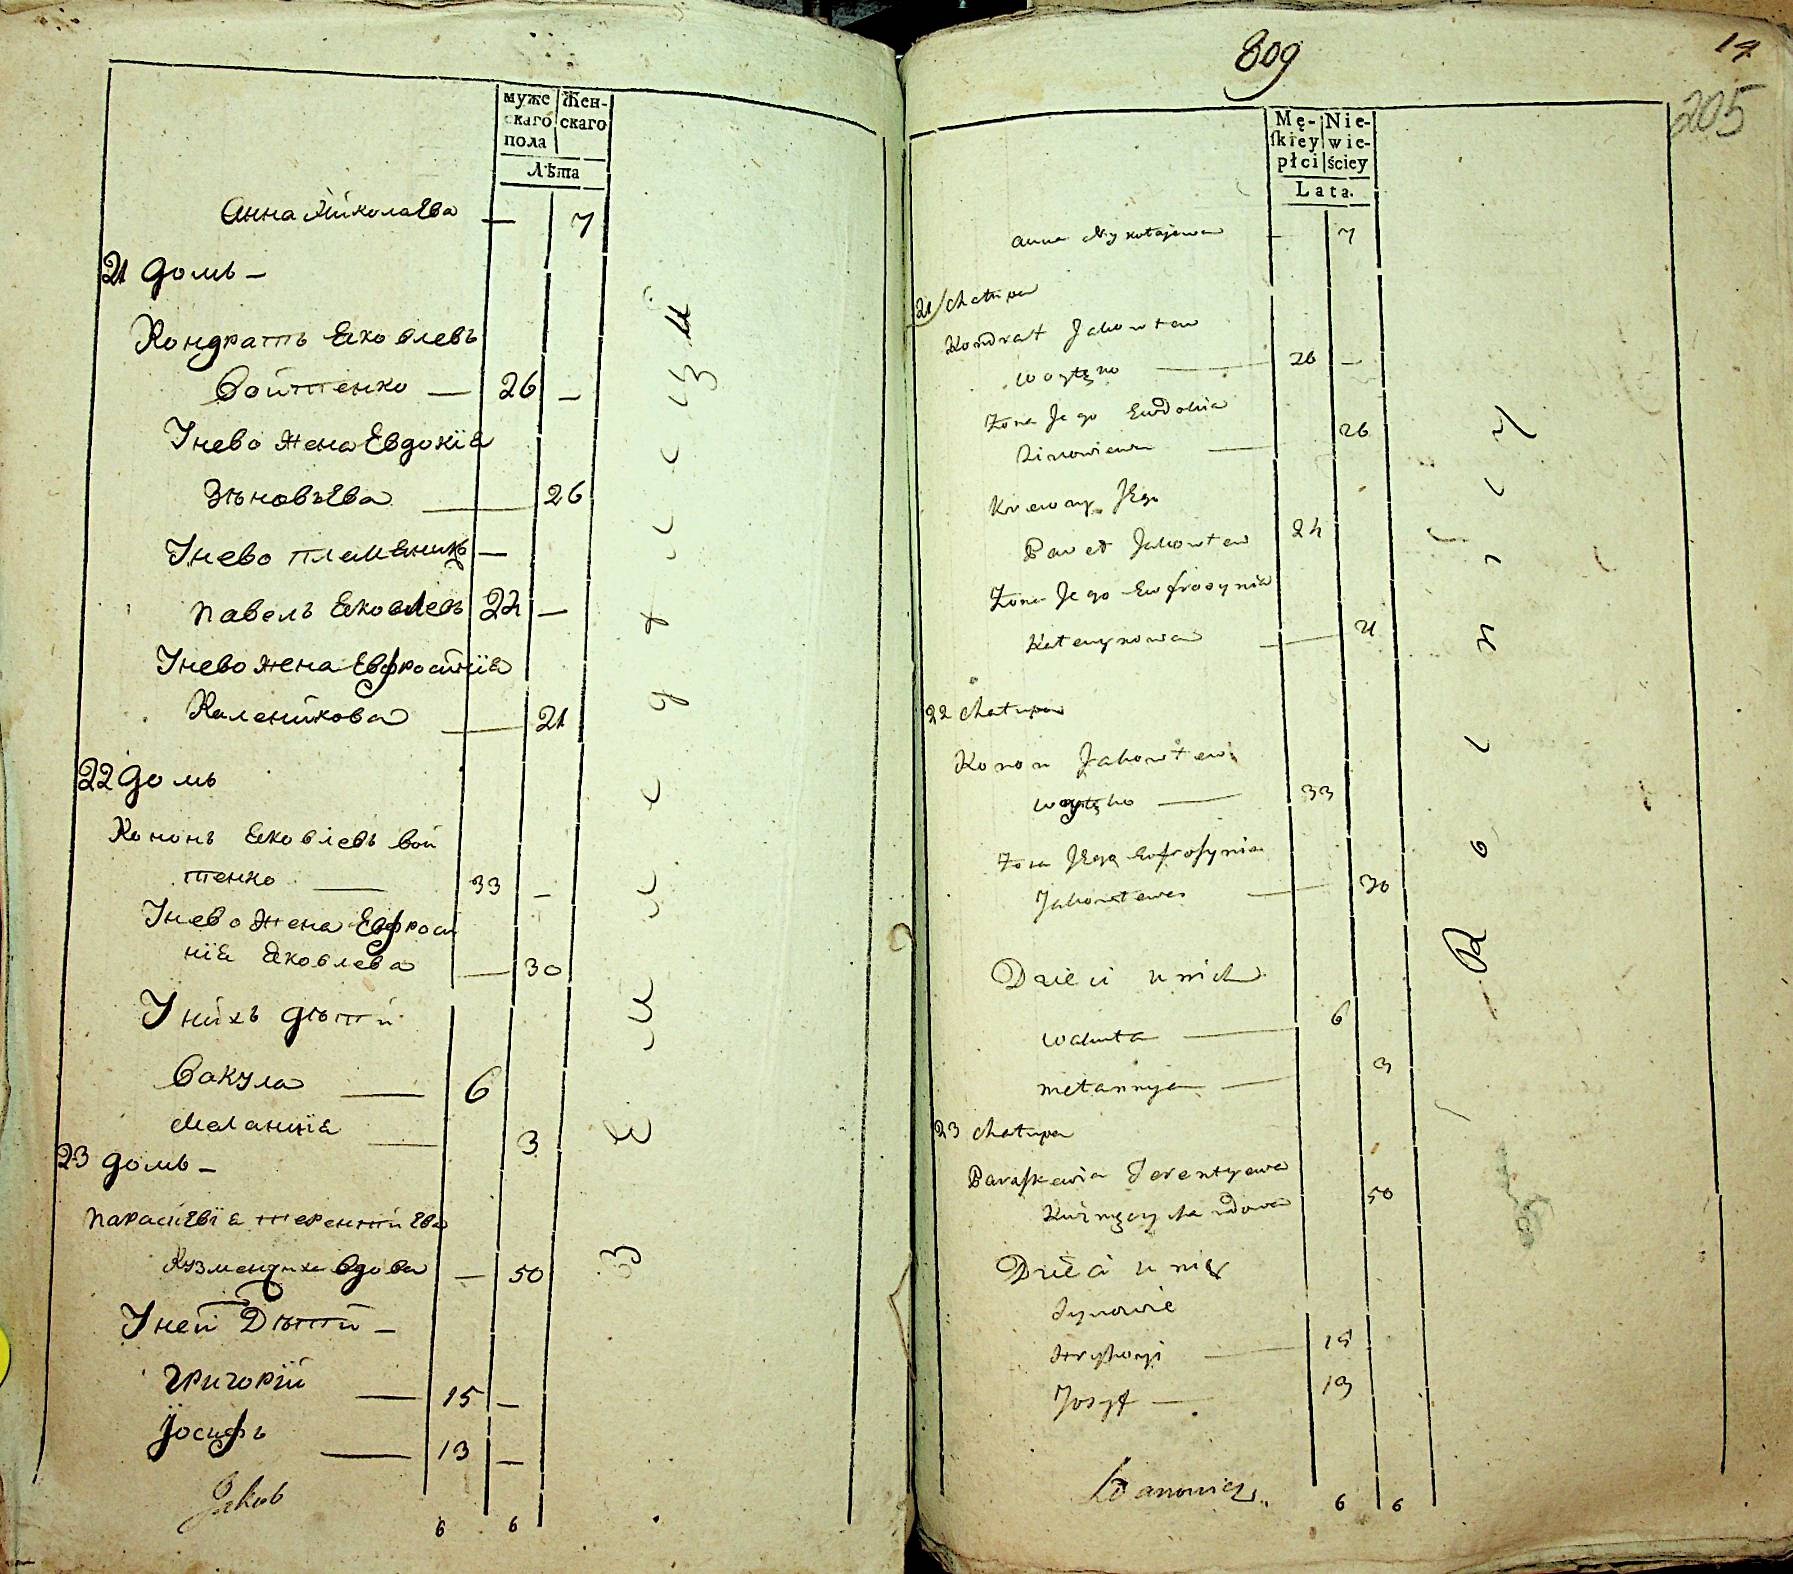 муже Жен-
скаго скаго
пола
Лѣта
Анна Николаева — 7
21 домъ —
Кондратъ Яковлевъ
Войтенко — 26 —
У нево жена Евдокія
Зѣновьева — 26
У нево племяникъ —
Павелъ Яковлевъ 24 —
У нево жена Евфросинія
Каленикова — 21
22 домъ
Кононъ Яковлевъ Вой
тенко — 33 —
У нево жена Евфроси
нія Яковлева — 30
У нихъ дѣти
Вакула — 6
Маланиія — 3
23 домъ —
Параскевія Терентиіева
Кузменчиха вдова — 50
У ней Дѣти —
Григорій — 15 —
Іосифъ — 13 —
Jakub
6 6
Земледелци
809
14
205
Mę- Nie-
skiey wie-
płci ściey
Lata.
Anna Mykołajewa — 7
21 Chałupa
Kondrat Jakowlew
Woytęko — 26 —
Żona Jego Ewdokia
Zinowiewa — 26
Krewny Jego
Paweł Jakowlew 24
Żona Jego Ewfrosynia
Kalenykowa — 21
22 Chałupa
Konon Jakowlew
Woytęko — 33
Żona Jego Eufrosynia
Jakowlewa — 30
Dzieci u nich
Wakuła — 6
Mełannya — 3
23 Chałupa
Paraskewia Terentyewa
Kuzmęczycha wdowa 50
Dzieci u niey
Synowie
Hryhoryi — 15
Josyf — 13
Zdanowicz
6 6
Rolnicy